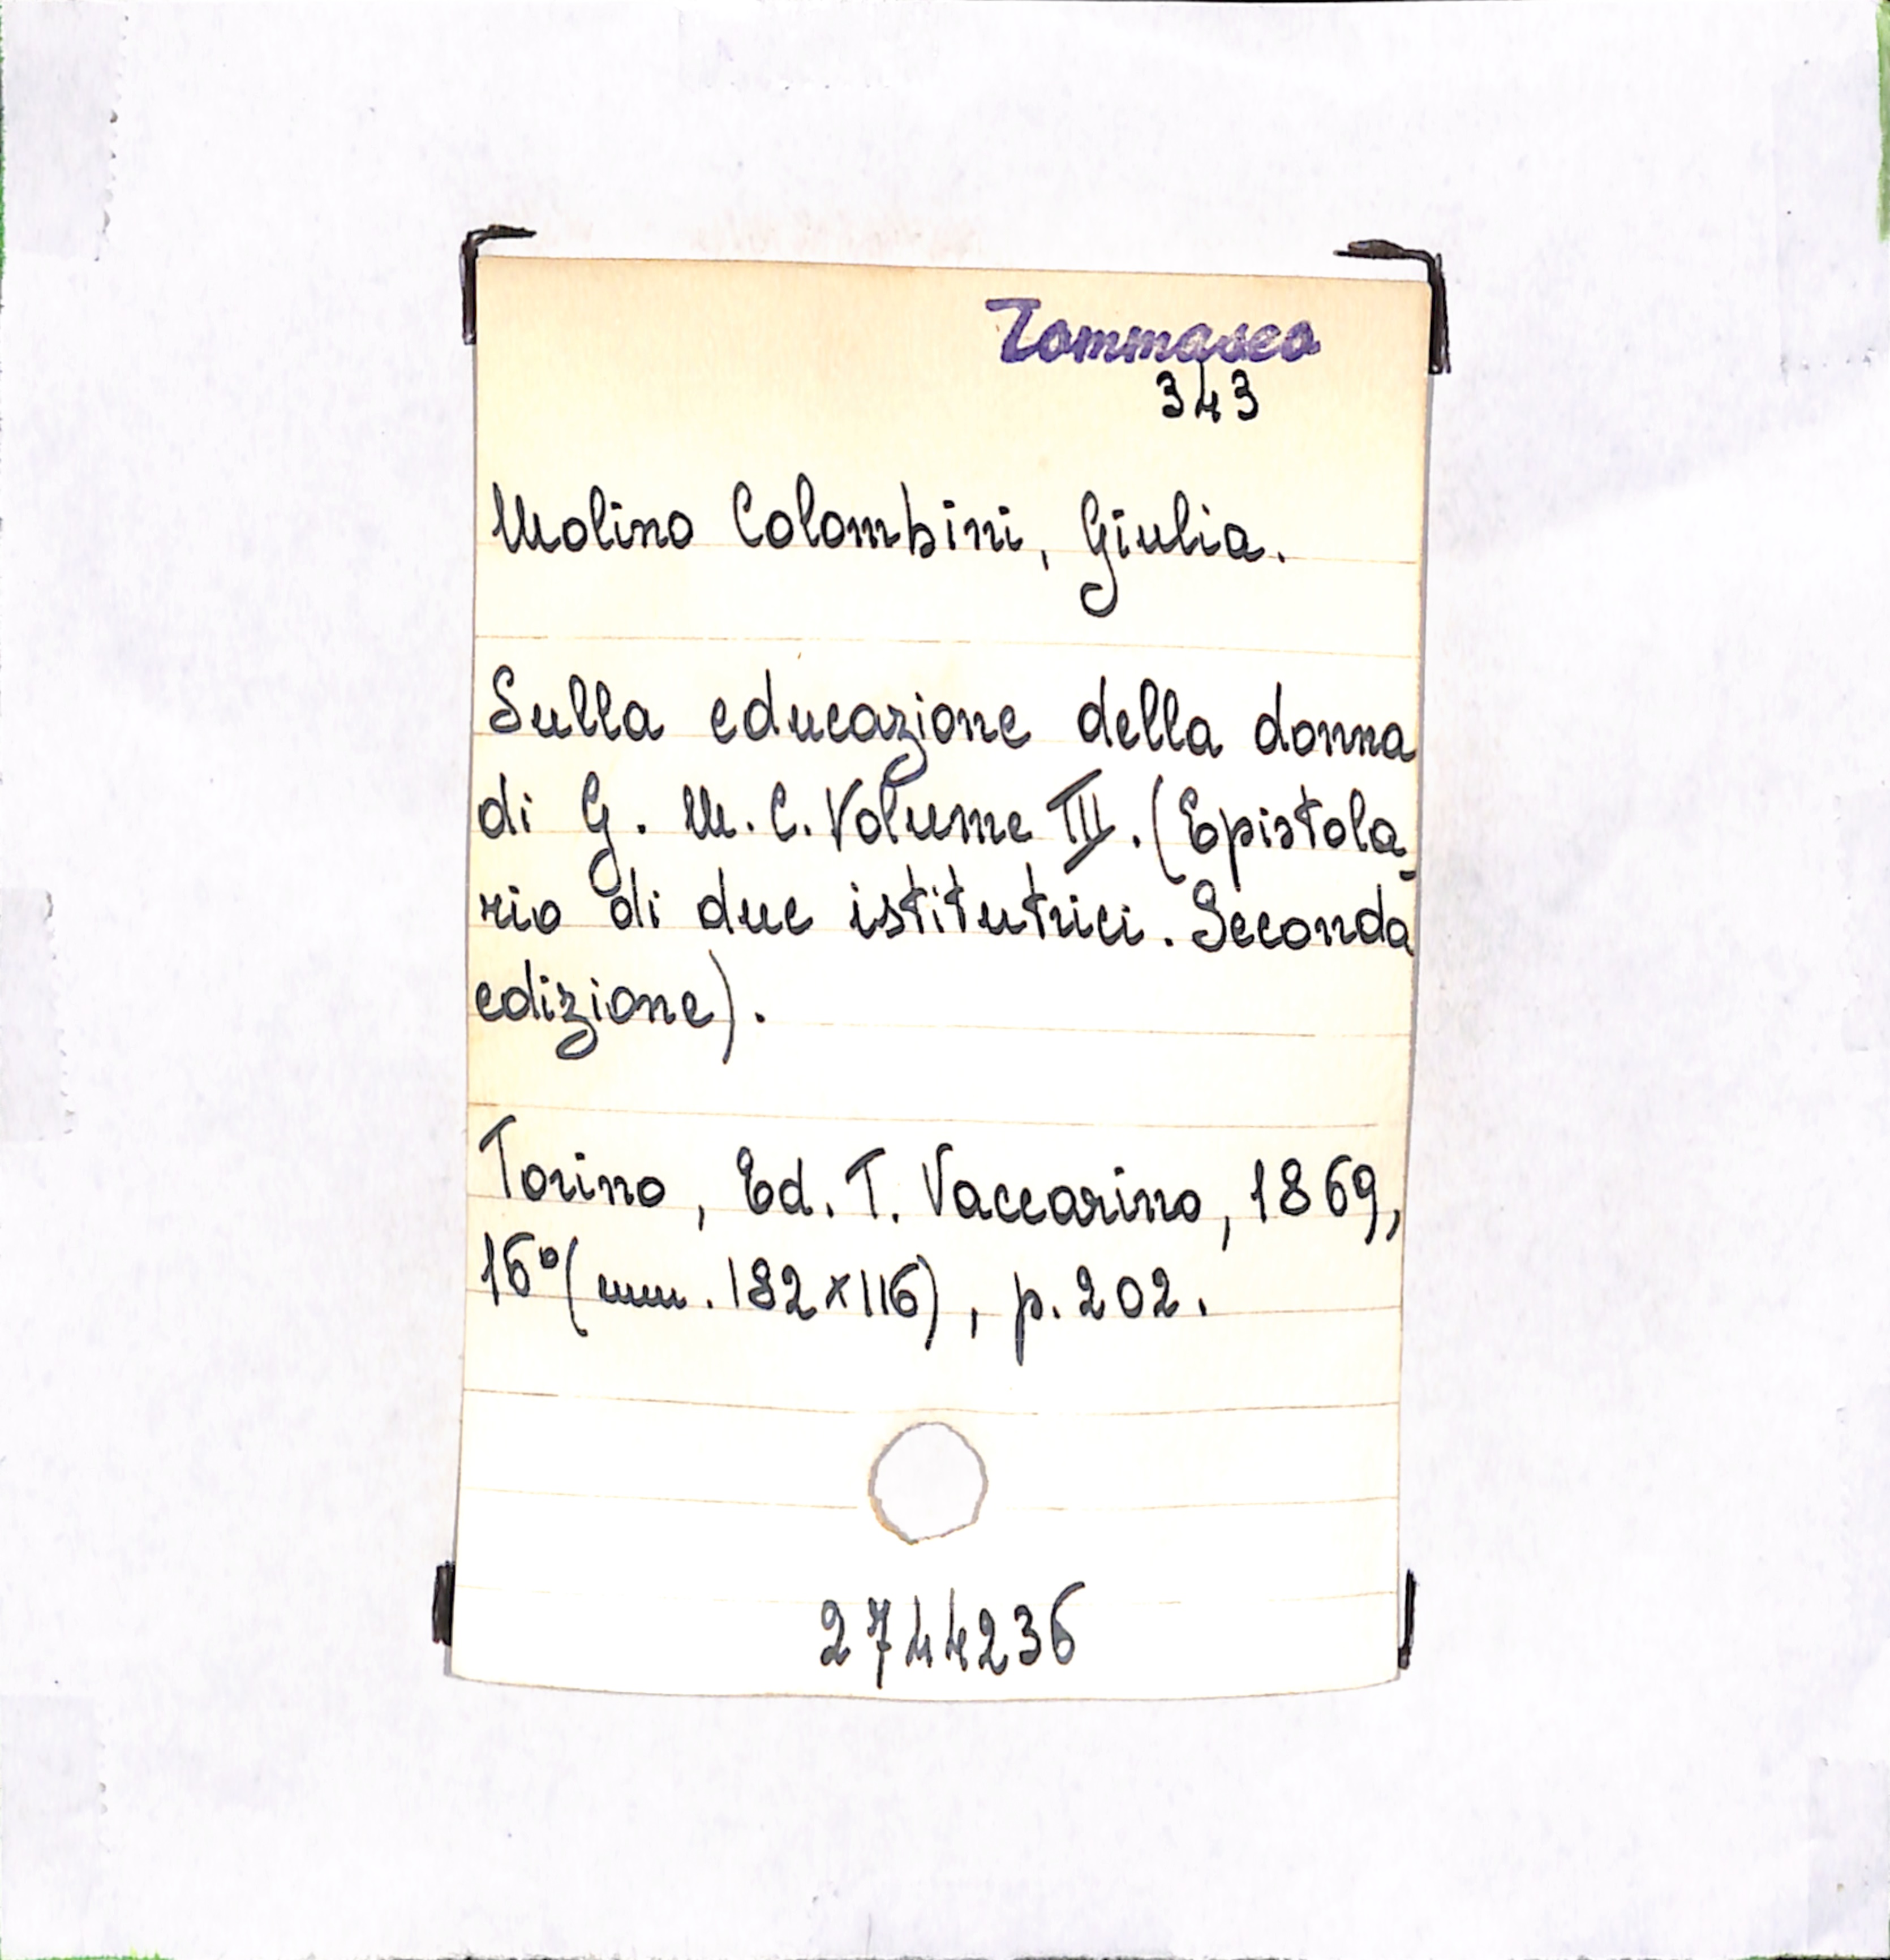 Tommaseo
343
Molino Colombini, Giulia.
Sulla educazione della donna
di G. M. C. Volume III. (Epistola-
rio di due istitutrici. Seconda
edizione).
Torino, Ed. T. Vaccarino, 1869,
16° (mm. 182x116), p. 202.
2744236